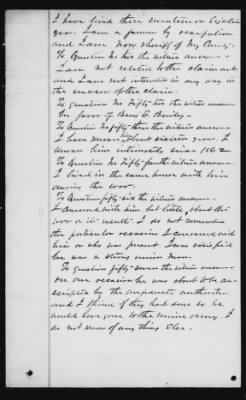 I have lived there seventeen or Eighteen
years. I am a farmer by occupation
and I am now sheriff of my County.
To Question No two the witness answers
I am not related to the claimant
and I am not interested in any way in
the success of the claim
To Question No Fifty two the witness answers
In favor of
To Question No fifty three the witness answers
I have known about sixteen years. I
knew him intimately since 1862
To Question No Fifty fourth witness answers
I lived in the same house with him
during the war.
To Question fifty six the witness answers
I conversed with him but little about the
war or its result. I do not remember
the particular occasion I conversed with
him or who was present. I was satisfied
he was a strong union man.
To Question fifty seven the witness answers
On one occasion he was about to be con-
scripted by the confederate authorities
and I think if they had done so he
would have gone to the union army. I
do not know of any thing Else.